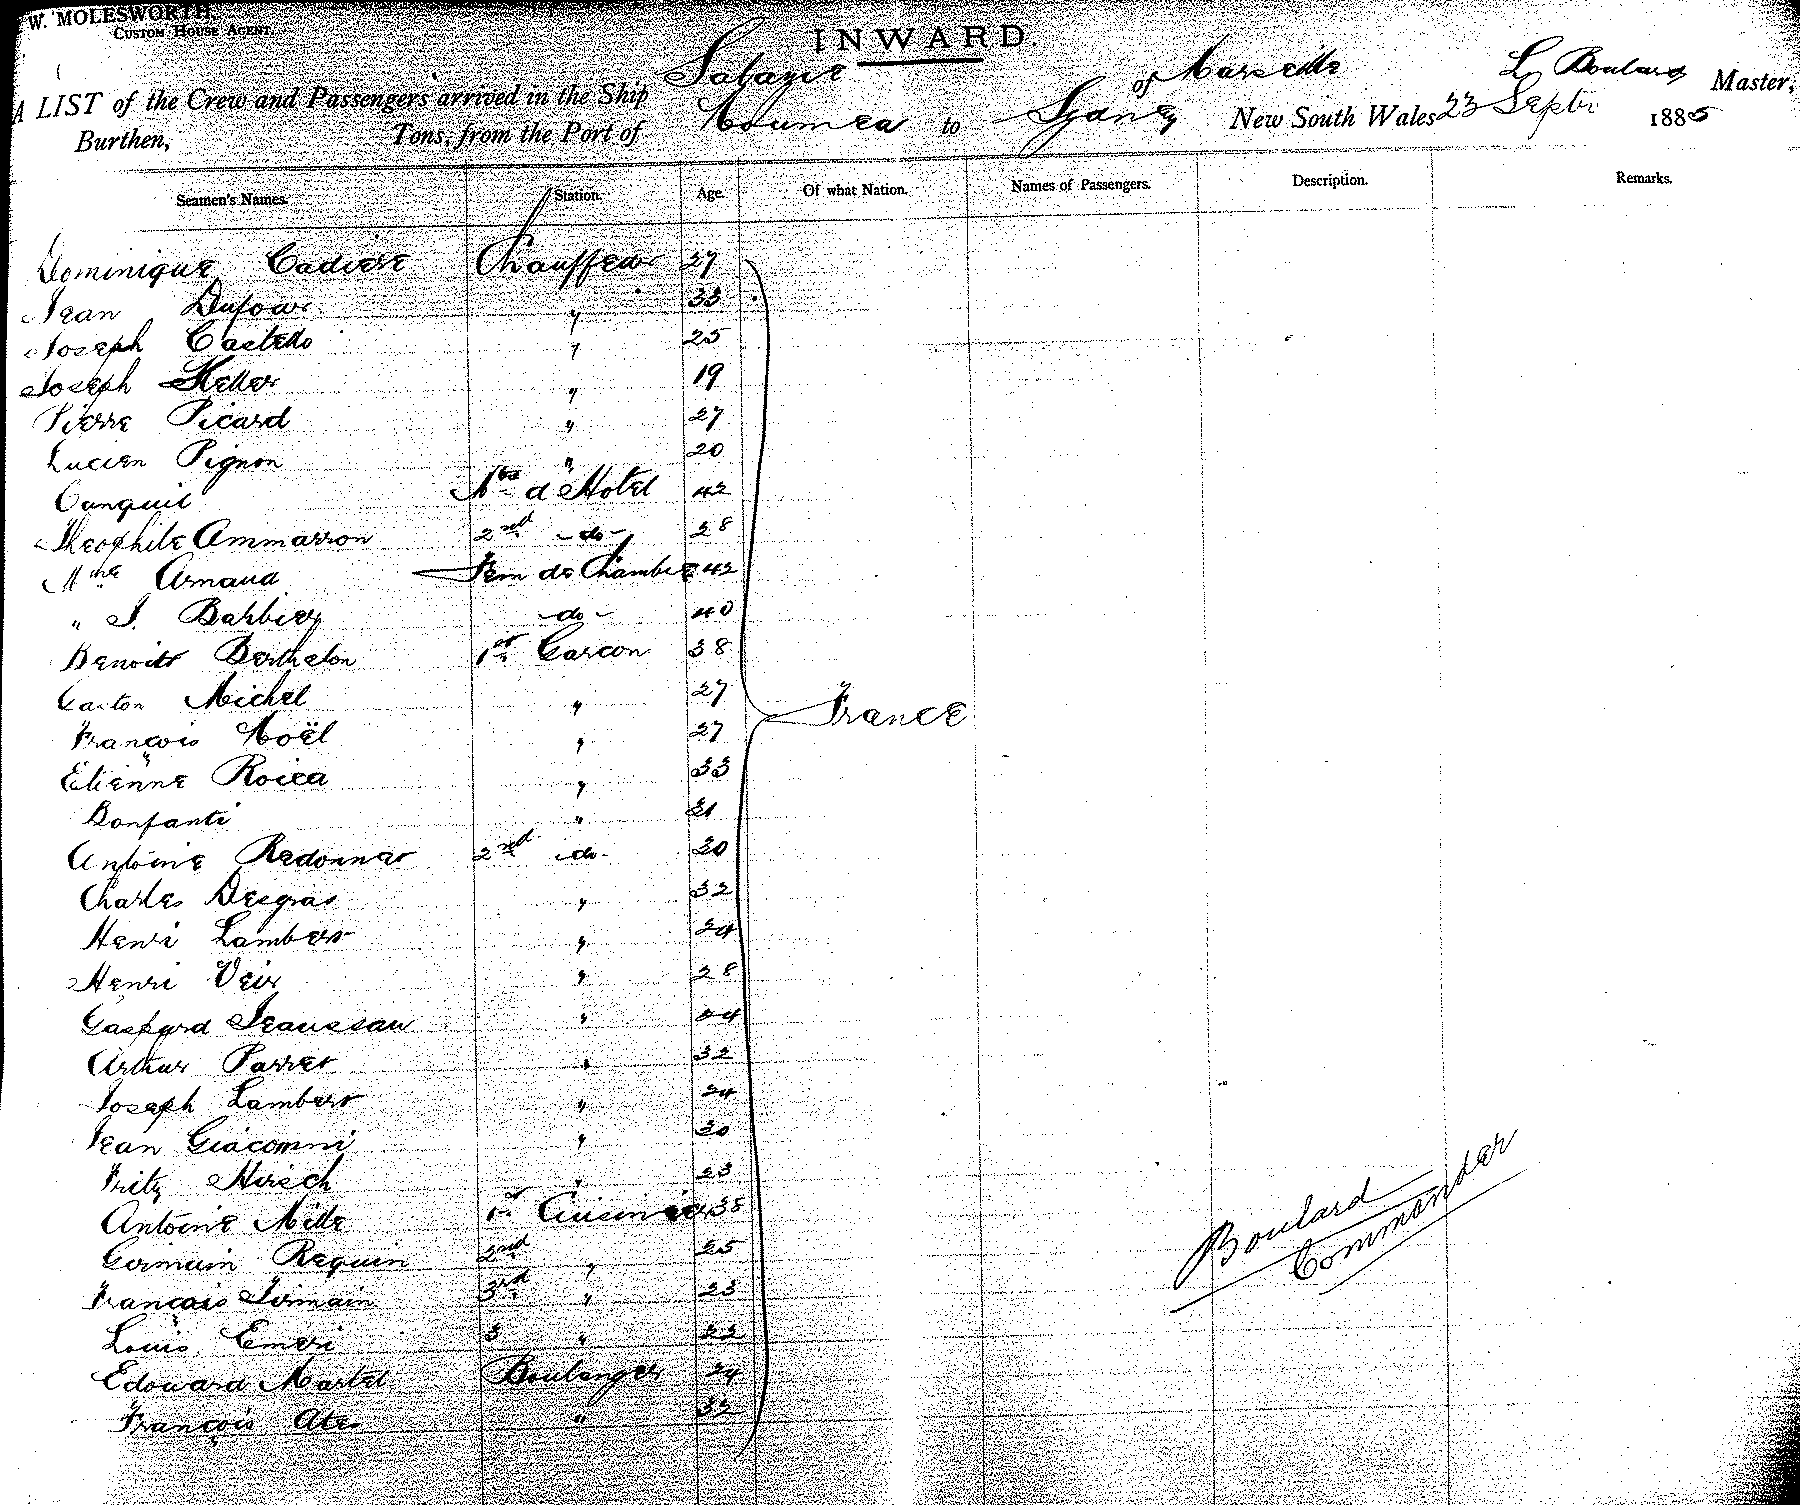 W. MOLESWORTH,
CUSTOM HOUSE AGENT.
INWARD.
A LIST of the Crew and Passengers arrived in the Ship Salazie of Marseille L Boulard Master,
Burthen, Tons, from the Port of Noumea to Sydney New South Wales 23 Septr 1885
Seamen's Names. Station. Age. Of what Nation. Names of Passengers. Description. Remarks.
Dominique Cadiere Chauffeur 27
Jean Dufour " 33
Joseph Castedo " 25
Joseph Keller " 19
Pierre Picard " 27
Lucien Pignon " 20
Canquil Mtre d'Hotel 42
Theophile Ammarron 2nd -do- 28
Mme Arnaud Fem de Chambre 42
" J. Barbier -do- 40
Benoit Berthelon 1er Garcon 38
Gaston Michel " 27
François Noël " 27 France
Etienne Roica " 33
Bonfanti " 21
Antoine Redonner 2nd -do- 20
Charles Desgras " 32
Henri Lambert " 24
Henri Veir " 28
Gaspard Jeaussau " 24
Arthur Parret " 32
Joseph Lambert " 24
Jean Giacomini " 30
Fritz Hirsch " 23
Antoine Mille 1er Cuisinier 38
Germain Requin 2nd " 25
François Jermain 3rd " 23
Louis Emeri 3 " 22
Edouard Martel Boulanger 24
François Ales " 32
Boulard
Commander